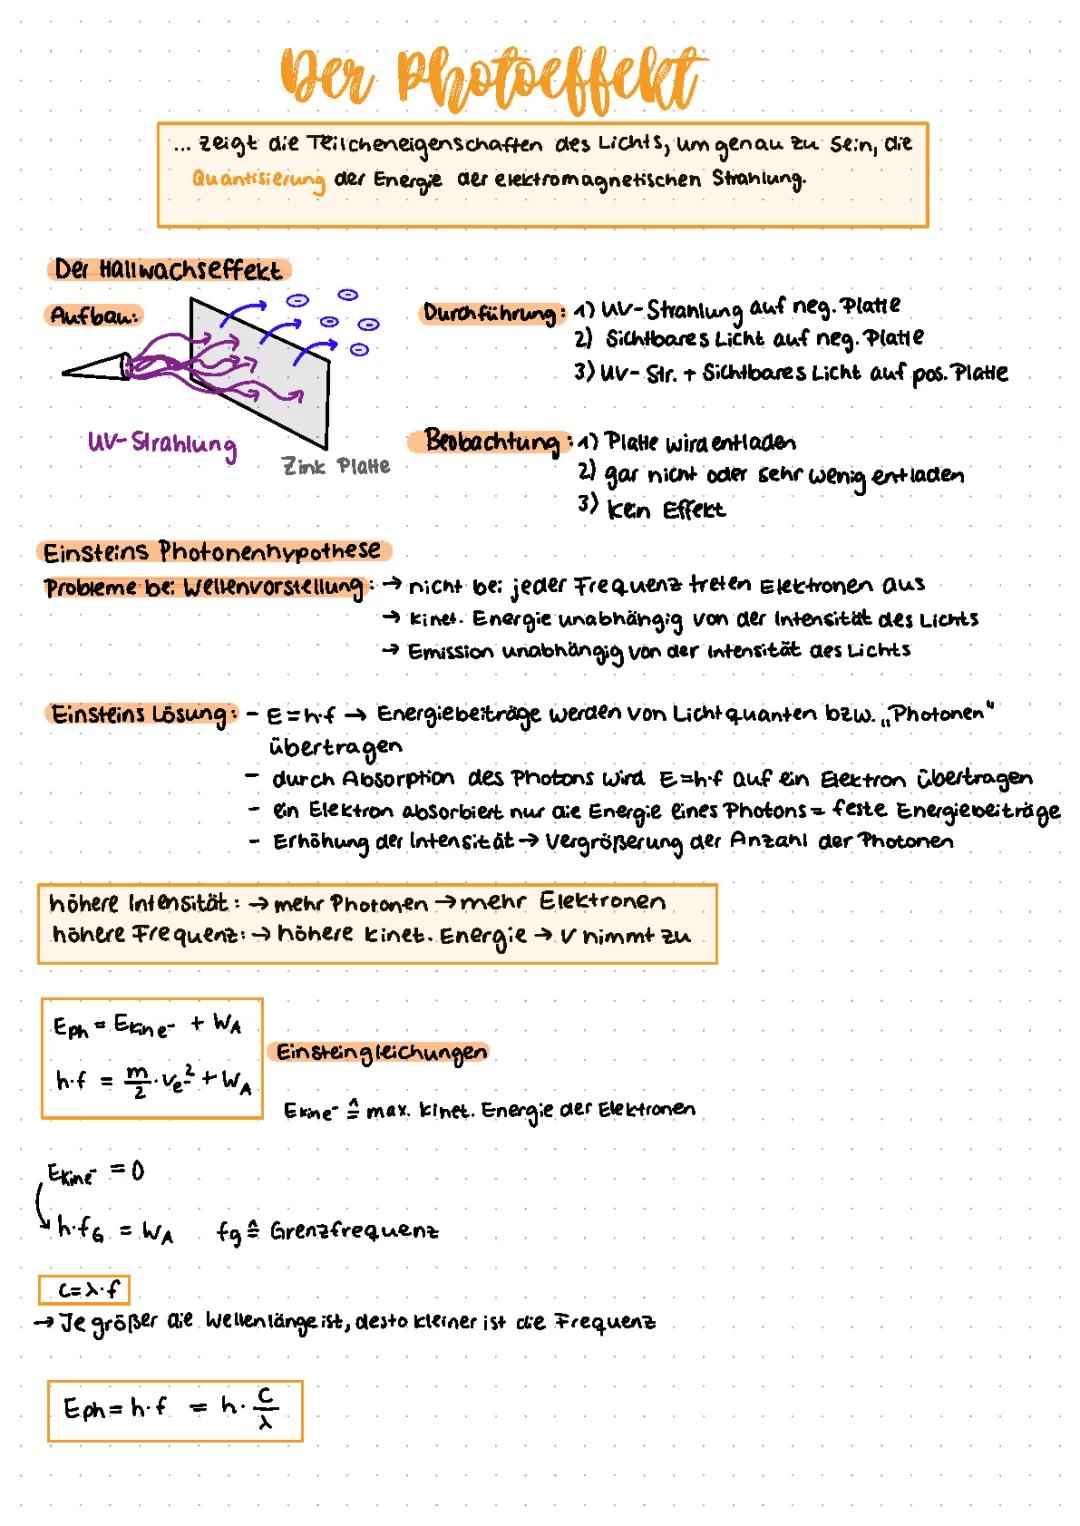 Der Photoeffekt
... zeigt die Teilcheneigenschaften des Lichts, um genau zu sein, die
Quantisierung der Energie der elektromagnetischen Strahlung.
Der Hallwachseffekt
Aufbau:
UV-Strahlung
Zink Platte
Durchführung: 1) UV-Strahlung auf neg. Platte
2) Sichtbares Licht auf neg. Platte
3) UV-Str. + Sichtbares Licht auf pos. Platte
Beobachtung: 1) Platte wird entladen
2) gar nicht oder sehr wenig entladen
3) kein Effekt
Einsteins Photonenhypothese
Probleme bei Wellenvorstellung: → nicht bei jeder Frequenz treten Elektronen aus
→ kinet. Energie unabhängig von der Intensität des Lichts
→ Emission unabhängig von der Intensität des Lichts
Einsteins Lösung: - E=h·f → Energiebeiträge werden von Lichtquanten bzw. „Photonen“
übertragen
- durch Absorption des Photons wird E=h·f auf ein Elektron übertragen
- ein Elektron absorbiert nur die Energie eines Photons = feste Energiebeiträge
- Erhöhung der Intensität → Vergrößerung der Anzahl der Photonen
höhere Intensität: → mehr Photonen → mehr Elektronen
höhere Frequenz: → höhere kinet. Energie → v nimmt zu
Eph = Ekine⁻ + WA
h·f = m/2 · ve² + WA
Einsteingleichungen
Ekine⁻ ≙ max. kinet. Energie der Elektronen
Ekine⁻ = 0
h·fG = WA fg ≙ Grenzfrequenz
c=λ·f
→ Je größer die Wellenlänge ist, desto kleiner ist die Frequenz
Eph = h·f = h · c/λ